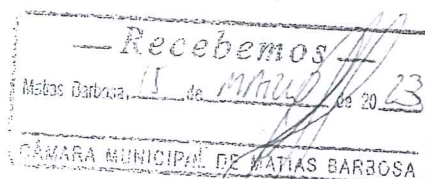 Recebemos
Matias Barbosa, 15 de Março de 2023
CÂMARA MUNICIPAL DE MATIAS BARBOSA